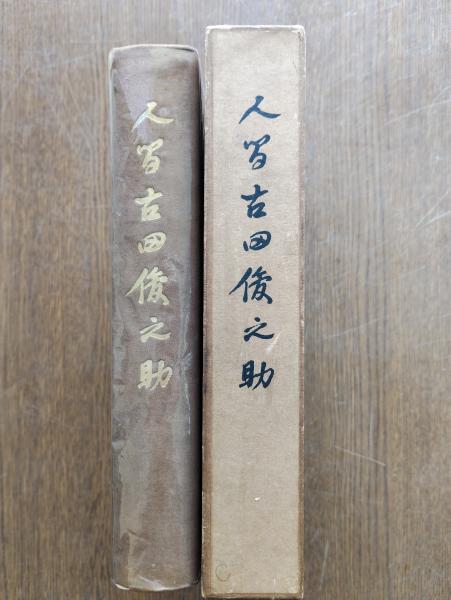 人間古田俊之助
人間古田俊之助